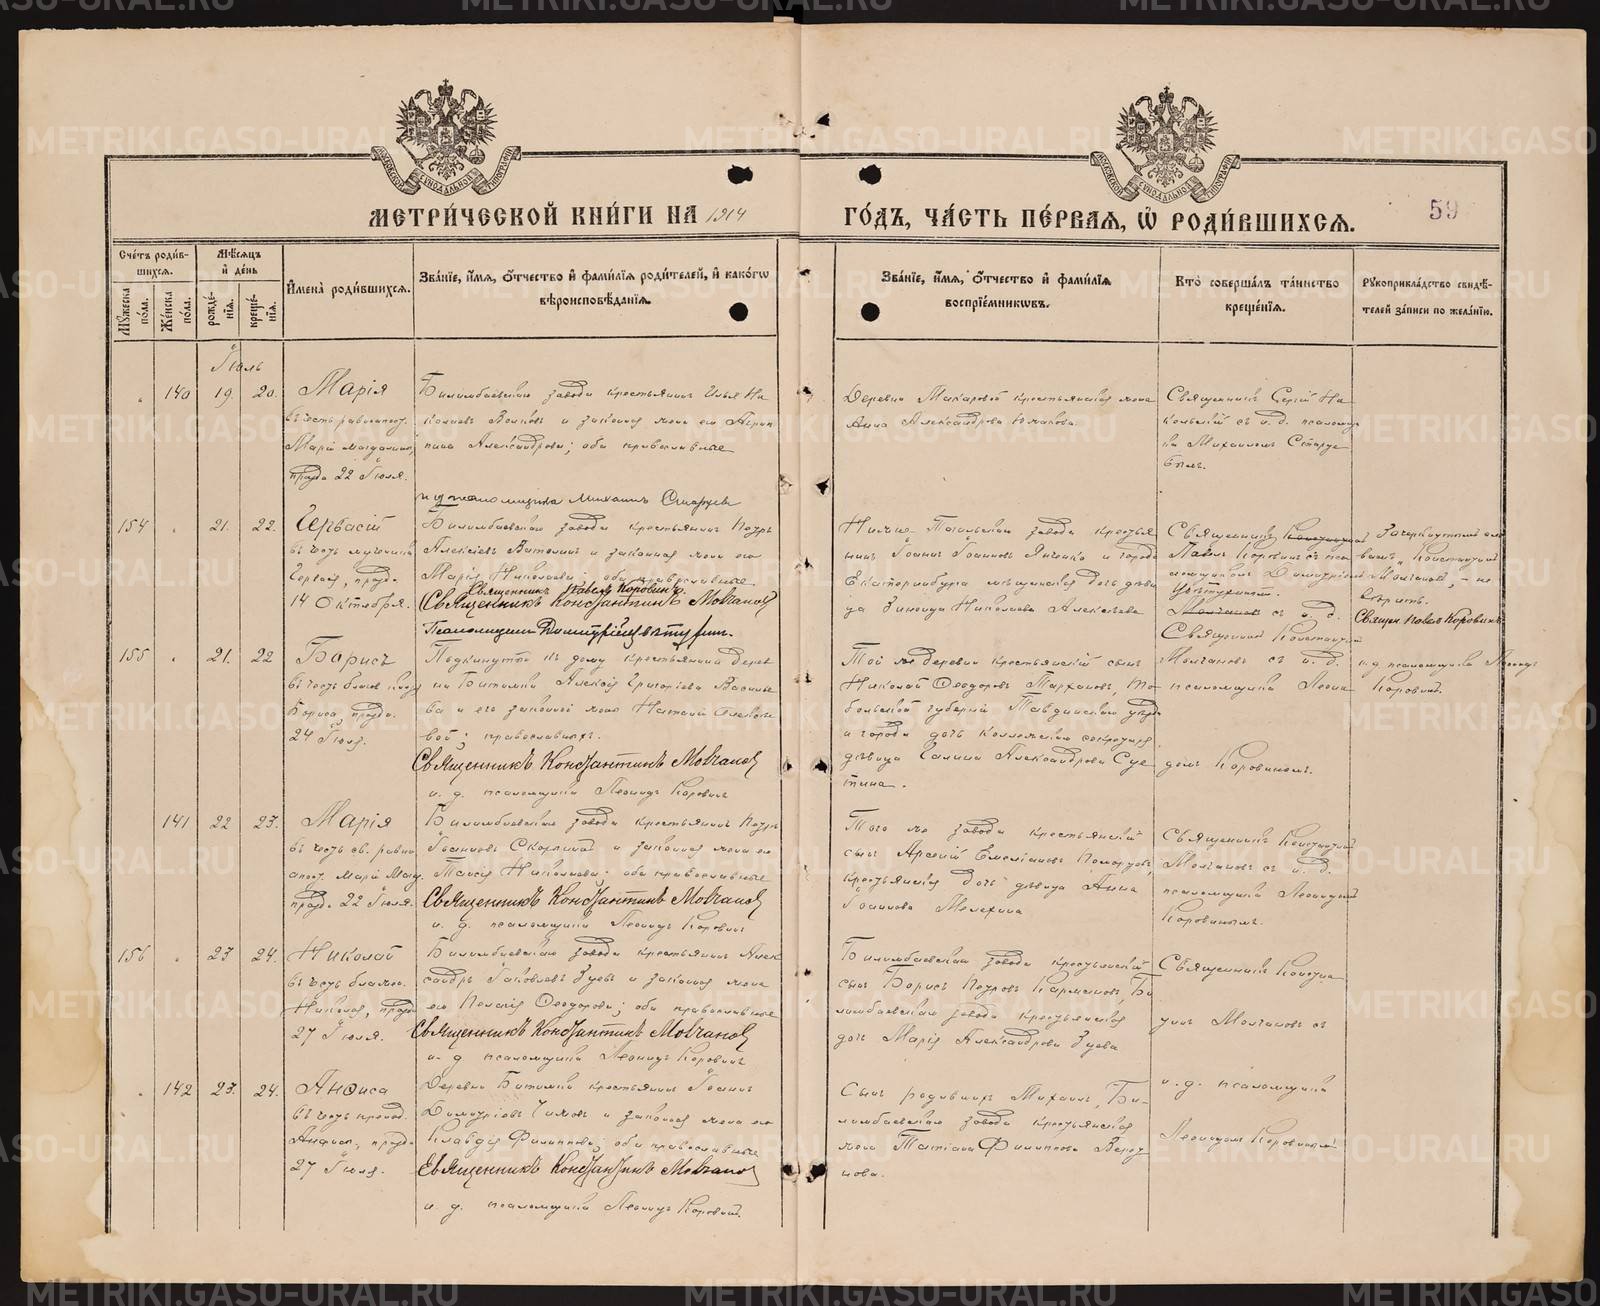 МЕТРИ́ЧЕСКОЙ КНИ́ГИ НА 1914
ГО́ДЪ, ЧА́СТЬ ПЕ́РВАѦ, Ѿ РОДИ́ВШИХСѦ.
59
Сче́тъ роди́в-
шихся.
Мѣ́сяцъ
и҆ де́нь
Мꙋ́жеска по́ла.
Же́нска по́ла.
рожде́нїя.
креще́нїя.
И҆мена̀ роди́вшихся.
Зва́нїе, и҆́мя, о҆́тчество и҆ фами́лїя роди́телей, и҆ како́гѡ
вѣроисповѣ́данїя.
Зва́нїе, и҆́мя, о҆́тчество и҆ фами́лїя
воспрїе́мникѡвъ.
Кто̀ соверша́лъ та́инство
креще́нїя.
Рꙋкоприкла́дство свидѣ́-
телей за́писи по жела́нїю.
Іюль
140 19. 20. Марія
въ честь равноапост.
Маріи магдалины,
празд. 22 Іюля.
Билимбаевскаго завода крестьянинъ Илья Ни
и законная жена его Агрип
пина Александрова; оба православные
Деревни Макаровой крестьянская жена
Анна Александрова
Священникъ Сергій Ни
съ и. д. псаломщи
ка Михаиломъ Старце
вымъ.
и. д. псаломщика Михаилъ Старцевъ
154 21. 22. Гервасій
въ честь мученика
Гервасія, празд.
14 Октября.
Билимбаевскаго завода крестьянинъ Петръ
Алексіевъ и законная жена его
Марія Николаева; оба православные
Священникъ Павелъ Коровинъ
Священникъ Константинъ Молчановъ
Псаломщикъ Димитрій
Нижне-Тагильскаго завода крестья
нинъ Іоаннъ Іоанновъ Янченко и города
Екатеринбурга мѣщанская дочь дѣви
ца Зинаида Николаева Алексѣева
Священникъ Константинъ
Павелъ Коровинъ съ пса
ломщикомъ Димитріемъ
Молчановъ съ и. д.
Зачеркнутымъ сло
вамъ „Константинъ
Молчановъ“, – не
вѣрить.
Священ. Павелъ Коровинъ
155 21. 22 Борисъ
въ честь благов. князя
Бориса, празд.
24 Іюля.
Подкинутъ къ дому крестьянина дерев
ни Битимки Алексія Григоріева Василье
ва и его законной жены Наталіи
вой; православныхъ.
Священникъ Константинъ Молчановъ
и. д. псаломщика Леонидъ Коровинъ
Той же деревни крестьянскій сынъ
Николай Ѳеодоровъ Тарханов, То-
больской губерніи Тавдинскаго уѣзда
и города дочь коллежскаго секретаря
дѣвица Галина Александрова Суе
тина.
Священникъ Константинъ
Молчановъ съ и. д.
псаломщика Леони
домъ Коровинымъ.
и. д. псаломщика Леонидъ
Коровинъ.
141 22 23. Марія
въ честь св. равно
апост. Маріи Магд.
празд. 22 Іюля.
Билимбаевскаго завода крестьянинъ Петръ
Іоанновъ и законная жена его
Таисія Николаева; оба православные
Священникъ Константинъ Молчановъ
и. д. псаломщика Леонидъ Коровинъ
Того же завода крестьянскій
сынъ Арсеній Емеліановъ
крестьянская дочь дѣвица Анна
Іоаннова Мелехина
Священникъ Константинъ
Молчановъ съ и. д.
псаломщика Леонидомъ
Коровинымъ.
156 23 24. Николай
въ честь блажен.
Николая, празд.
27 Іюля.
Билимбаевскаго завода крестьянинъ Алек
сандръ Іаковлевъ Зуевъ и законная жена
его Пелагія Ѳеодорова; оба православные
Священникъ Константинъ Молчановъ
и. д. псаломщика Леонидъ Коровинъ
Билимбаевскаго завода крестьянскій
сынъ Борисъ Петровъ Кармановъ, Би
лимбаевскаго завода крестьянская
дочь Марія Александрова Зуева
Священникъ Констан
тинъ Молчановъ съ
142 23. 24. Анѳиса
въ честь препод.
Анѳисы, празд.
27 Іюля.
Деревни Битимки крестьянинъ Іоаннъ
Димитріевъ и законная жена его
Клавдія Филиппова; оба православные
Священникъ Константинъ Молчановъ
и. д. псаломщика Леонидъ Коровинъ.
Сынъ родившихъ Михаилъ, Би-
лимбаевскаго завода крестьянская
жена Татіана Филиппова
нова.
и. д. псаломщика
Леонидомъ Коровинымъ
METRIKI.GASO-URAL.RU